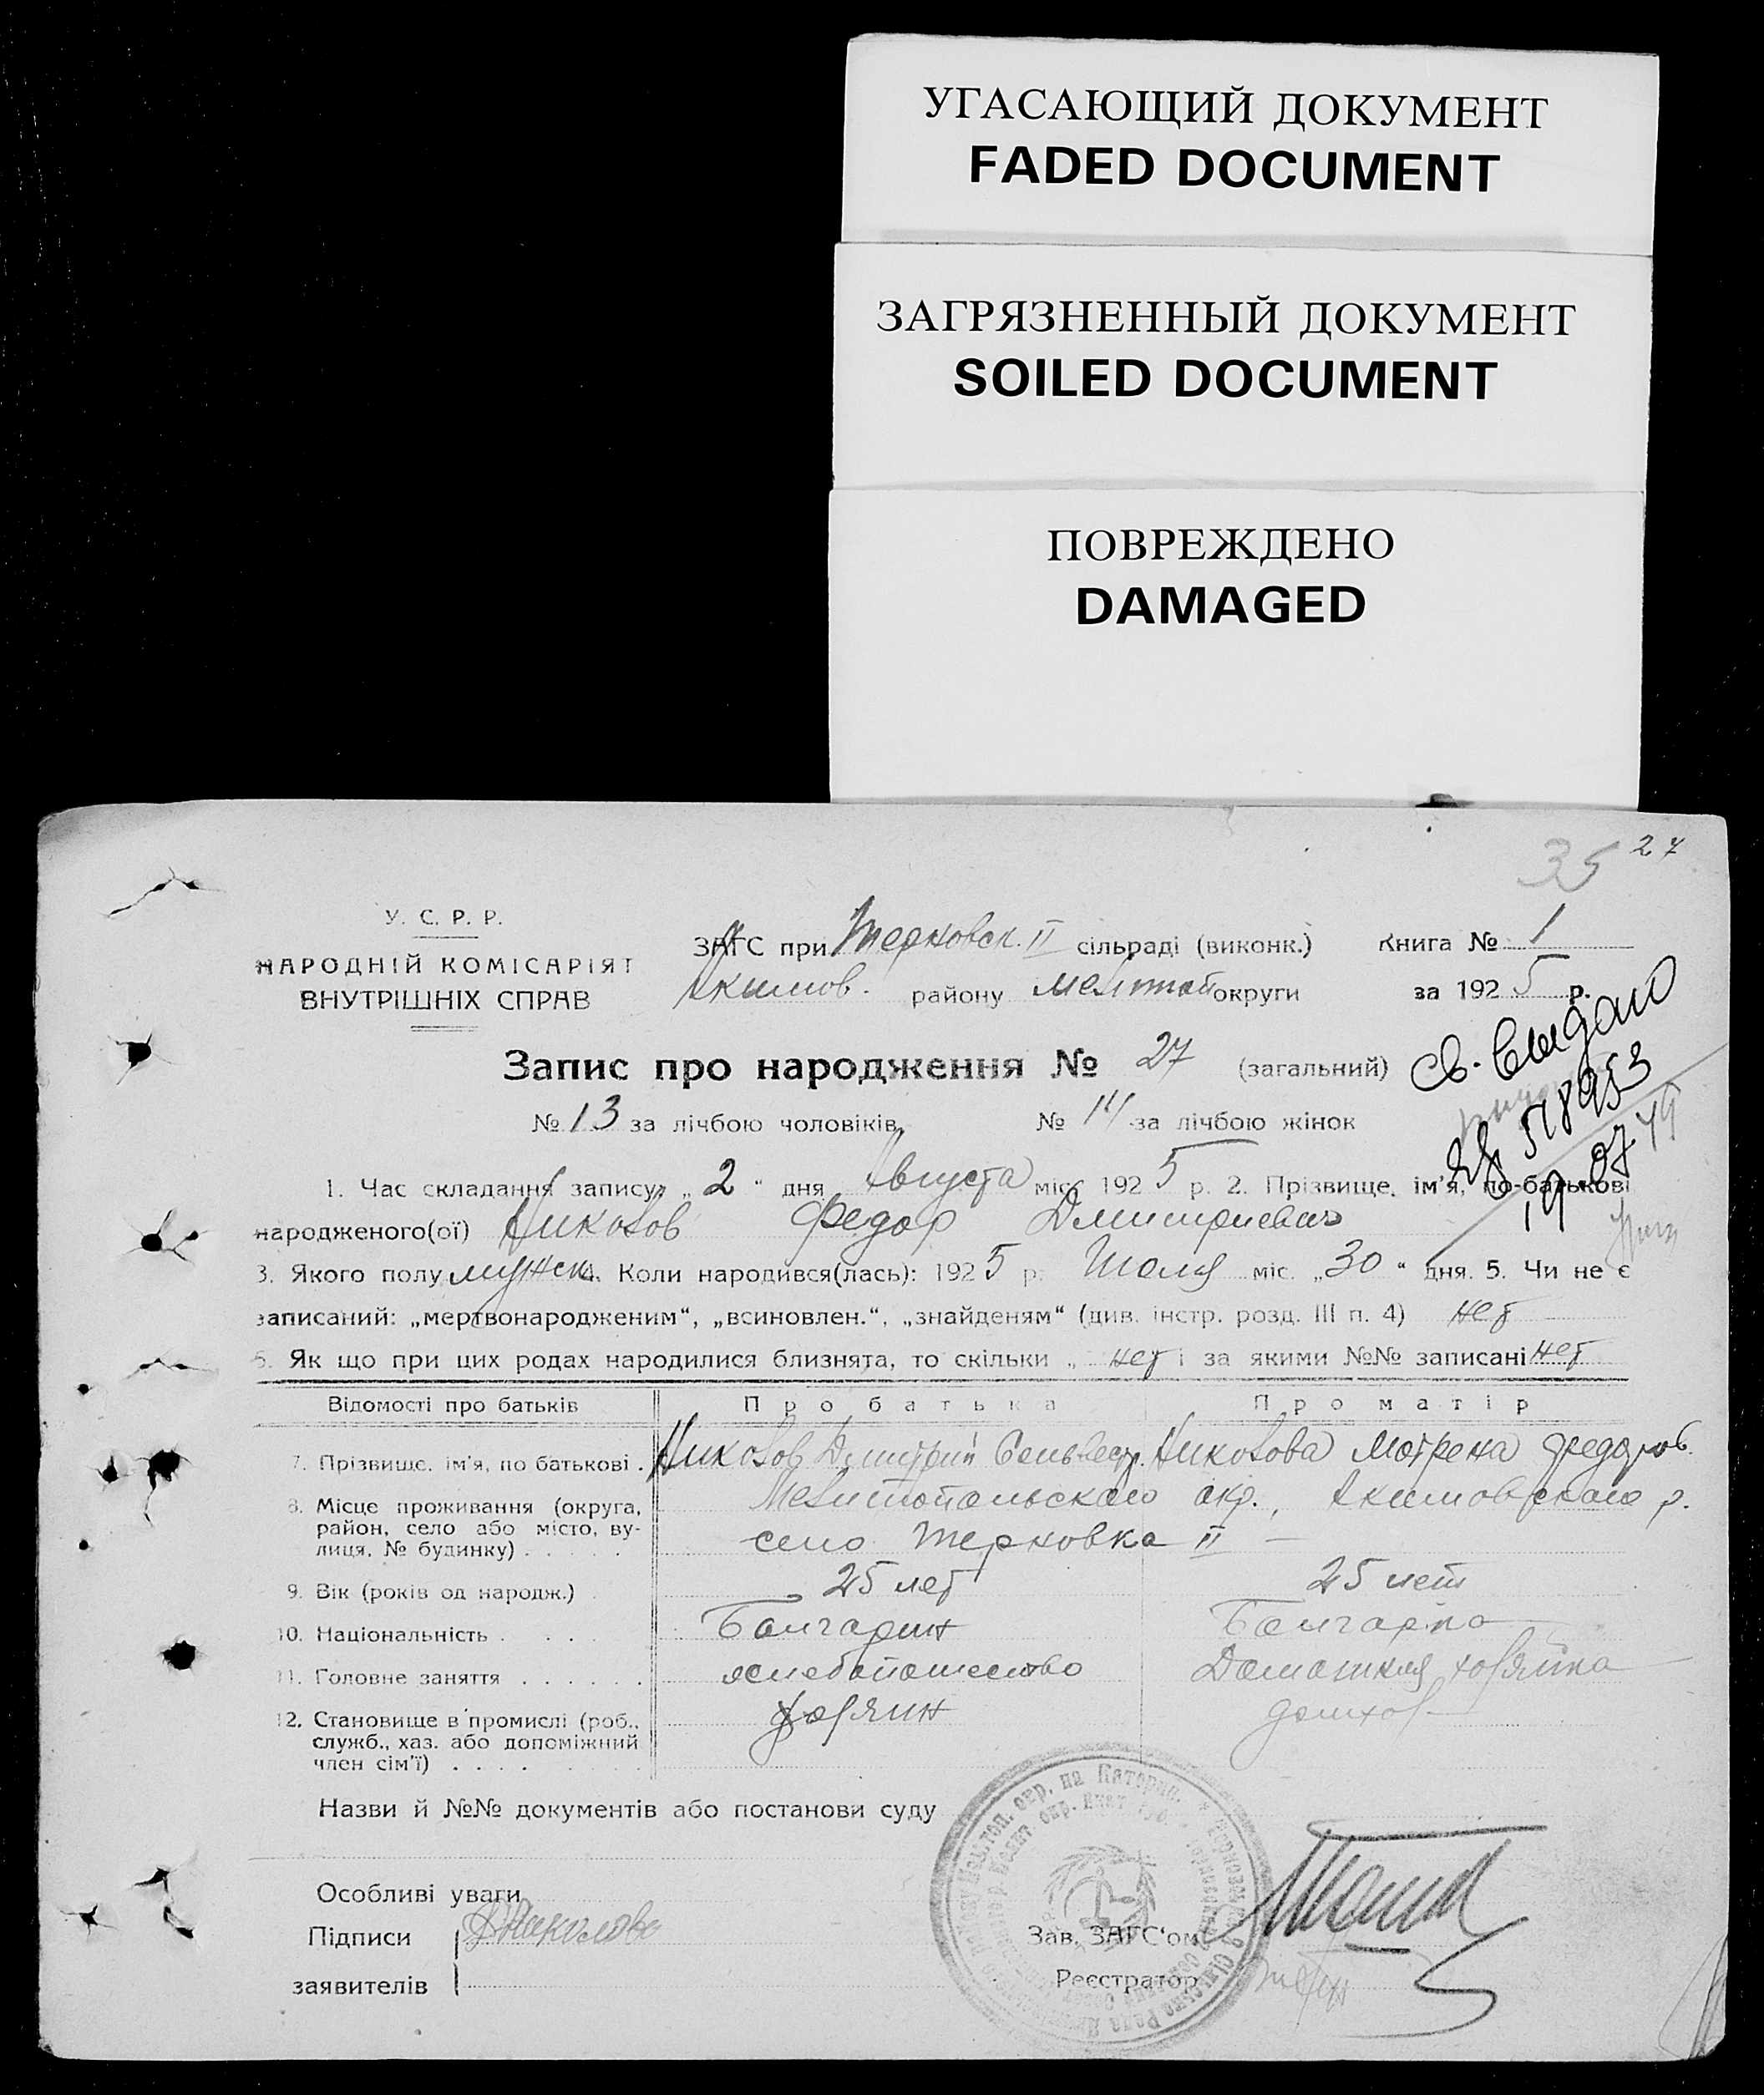 УГАСАЮЩИЙ ДОКУМЕНТ
FADED DOCUMENT
ЗАГРЯЗНЕННЫЙ ДОКУМЕНТ
SOILED DOCUMENT
ПОВРЕЖДЕНО
DAMAGED
35 27
У. С. Р. Р.
НАРОДНІЙ КОМІСАРІЯТ
ВНУТРІШНІХ СПРАВ
ЗАГС при Терновск. II сільраді (виконк.) Книга № 1
Акимов. району Мелитоп округи за 1925 р.
Св. выдано
518953
19.07.49
Запис про народження № 27 (загальний)
№ 13 за лічбою чоловіків № 14 за лічбою жінок
1. Час складання запису „2“ дня Августа міс. 1925 р. 2. Прізвище, ім'я, по-батькові
народженого(ої) Николов Федор Дмитриевич
3. Якого полу мужск. 4. Коли народився(лась): 1925 р. Июля міс. „30“ дня. 5. Чи не є
записаний: „мертвонародженим“, „всиновлен.“, „знайденям“ (див. інстр. розд. III п. 4) нет
6. Як що при цих родах народилися близнята, то скільки „ нет і за якими №№ записані нет
Відомості про батьків Про батька Про матір
7. Прізвище, ім'я, по батькові . Николов Дмитрий Сельвестр. Николова Мотрена Федоров.
8. Місце проживання (округа, район, село або місто, вулиця, № будинку) . . . . . Мелитопольского окр., Акимовского р.
село Терновка II
9. Вік (років од народж.) 25 лет 25 лет
10. Національність . . . . Болгарин Болгарка
11. Головне заняття . . . . . . хлебопашество Домашняя хозяйка
12. Становище в промислі (роб., служб., хаз. або допоміжний член сім'ї) . . . . хозяин домхоз
Назви й №№ документів або постанови суду
Особливі уваги
Підписи Д Николова
заявителів
Зав. ЗАГС'ом
Реєстратор